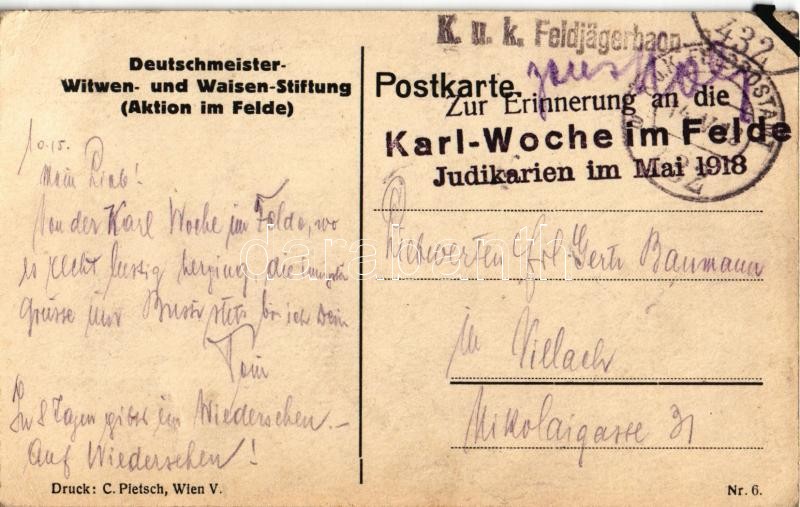 K. u. k. Feldjägerbaon
432
Deutschmeister-
Witwen- und Waisen-Stiftung
(Aktion im Felde)
Postkarte.
Zur Erinnerung an die
Karl-Woche im Felde
Judikarien im Mai 1918
10.15.
Mein Lieb!
Von der Karl Woche im Felde, wo
es recht lustig herging, die
Grüsse und Bussi stets bin ich Dein
Toni
In 8 Tagen gibts ein Wiedersehen.-
Auf Wiedersehen!
Liebwerten Frl. Gerti Baumann
in Villach
Nikolaigasse 31
Druck: C. Pietsch, Wien V.
Nr. 6.
darabanth